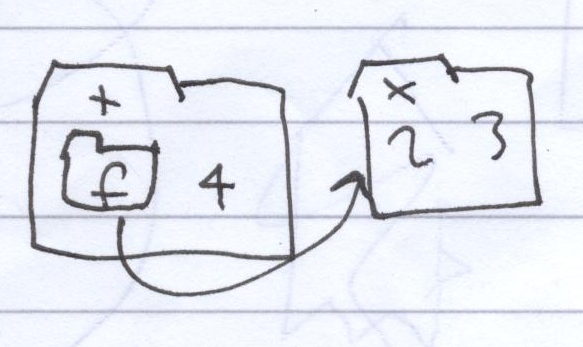 +
f 4
×
2 3